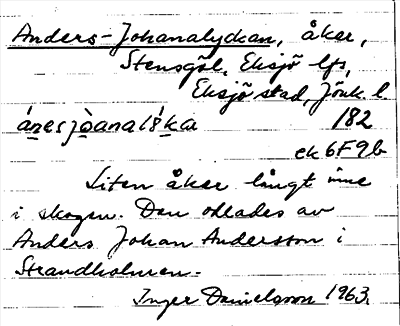 Anders-Johanalyckan, åker,
Stensgöl, Eksjö lfs,
Eksjö stad, Jönk. l.
182
ek 6F9b
Liten åker långt inne
i skogen. Den odlades av
Anders Johan Andersson i
Strandholmen.
Inger Danielsson 1963.